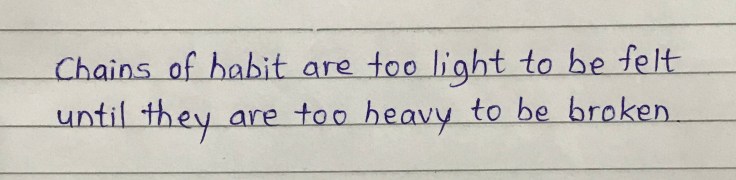 Chains of habit are too light to be felt
until they are too heavy to be broken.